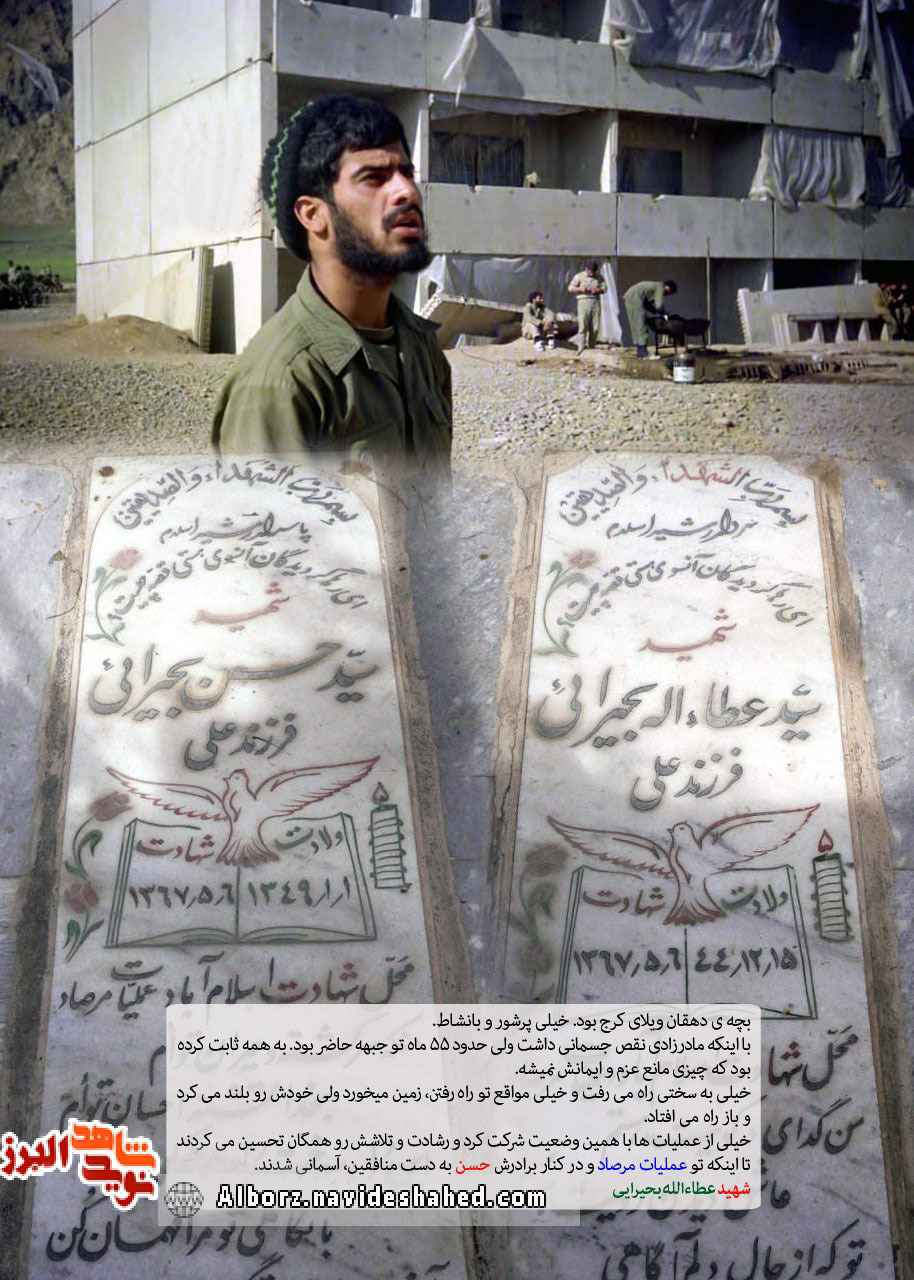 بسمِ رَبِّ الشهداء و الصّدیقین
پاسدار رشید اسلام
ای رها گردیدگان آنسوی هستی قصه چیست
شهید
سیّد حسن بحیرائی
فرزند علی
ولادت شهادت
۱۳۴۹٫۱٫۱ ۱۳۶۷٫۵٫۶
محَل شهادت اسلام آباد عملیّات مرصاد
بسمِ رَبِّ الشهداء و الصّدیقین
سردار رشید اسلام
ای رها گردیدگان آنسوی هستی قصه چیست
شهید
سیّد عطاء اله بحیرائی
فرزند علی
ولادت شهادت
۴۴٫۱۲٫۱۵ ۱۳۶۷٫۵٫۶
محَل
تو که از حال دلم آگاهی
بچه ی دهقان ویلای کرج بود. خیلی پرشور و بانشاط.
با اینکه مادرزادی نقص جسمانی داشت ولی حدود ۵۵ ماه تو جبهه حاضر بود. به همه ثابت کرده
بود که چیزی مانع عزم و ایمانش نمیشه.
خیلی به سختی راه می رفت و خیلی مواقع تو راه رفتن، زمین میخورد ولی خودش رو بلند می کرد
و باز راه می افتاد.
خیلی از عملیات ها با همین وضعیت شرکت کرد و رشادت و تلاشش رو همگان تحسین می کردند
تا اینکه تو عملیات مرصاد و در کنار برادرش حسن به دست منافقین، آسمانی شدند.
شهید عطاءالله بحیرایی
نوید شاهد البرز
Alborz.navideshahed.com